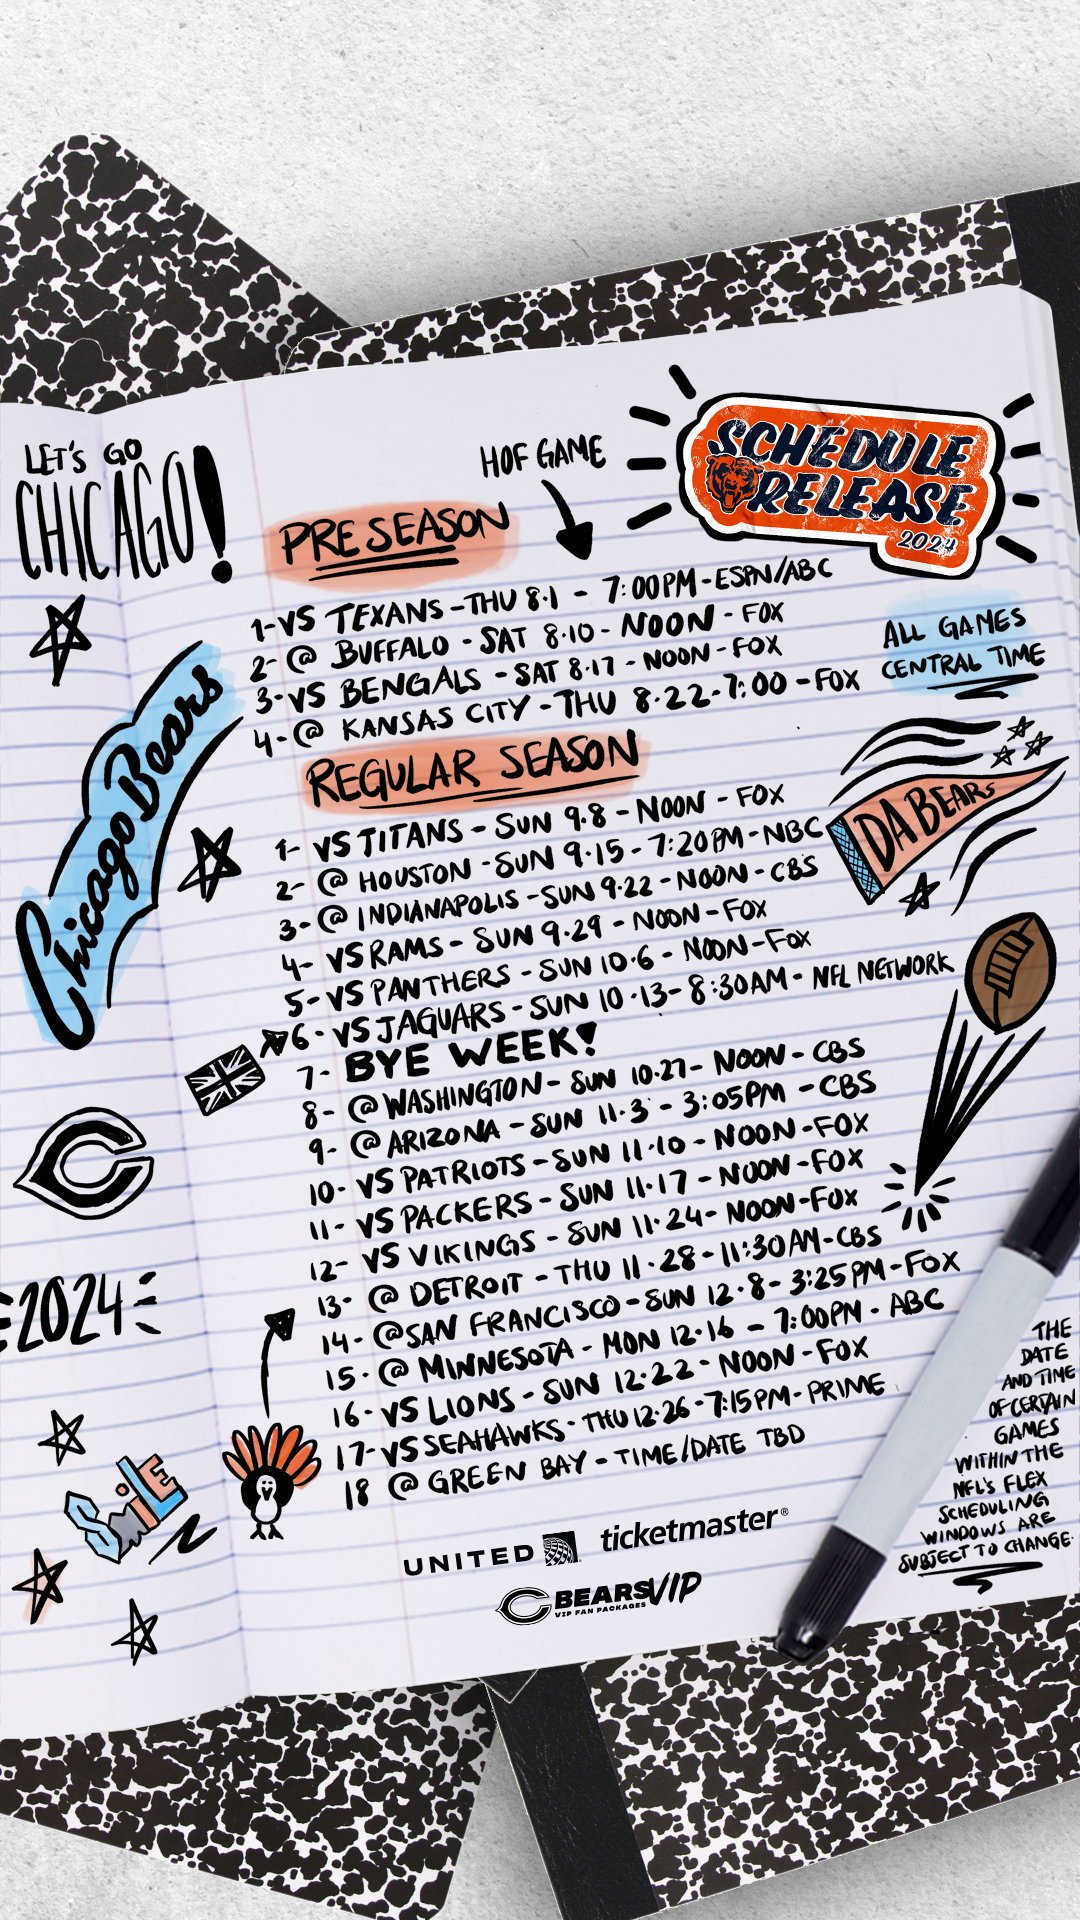 LET'S GO
CHICAGO!
HOF GAME
SCHEDULE
RELEASE
2024
PRESEASON
1-VS TEXANS-THU 8.1 - 7:00PM-ESPN/ABC
2-@ BUFFALO - SAT 8.10 - NOON - FOX
3-VS BENGALS - SAT 8.17 - NOON-FOX
4-@ KANSAS CITY -THU 8.22-7:00 -FOX
ALL GAMES
CENTRAL TIME
Chicago Bears
REGULAR SEASON
1- VS TITANS - SUN 9.8 - NOON - FOX
2- @ HOUSTON -SUN 9.15 - 7:20PM-NBC
3-@ INDIANAPOLIS -SUN 9.22 -NOON- CBS
4- VS RAMS- SUN 9.29 - NOON-FOX
5-VS PANTHERS - SUN 10.6 - NOON-FOX
6-VS JAGUARS-SUN 10.13-8:30AM- NFL NETWORK
7- BYE WEEK!
8- @WASHINGTON- SUN 10.27- NOON-CBS
9- @ARIZONA - SUN 11.3 - 3:05PM -CBS
10- VS PATRIOTS -SUN 11.10 - NOON-FOX
11- VS PACKERS - SUN 11.17 - NOON-FOX
12- VS VIKINGS - SUN 11.24- NOON-FOX
13- @ DETROIT - THU 11.28-11:30AM-CBS
14- @SAN FRANCISCO-SUN 12.8- 3:25PM-FOX
15- @ MINNESOTA - MON 12.16 - 7:00PM - ABC
16-VS LIONS - SUN 12.22 - NOON -FOX
17-VS SEAHAWKS-THU 12.26-7:15PM-PRIME
18 @ GREEN BAY - TIME/DATE TBD
DA BEARS
C
2024
SMILE
THE
DATE
AND TIME
OF CERTAIN
GAMES
WITHIN THE
NFL'S FLEX
SCHEDULING
WINDOWS ARE
SUBJECT TO CHANGE.
UNITED
ticketmaster®
BEARS VIP
VIP FAN PACKAGES